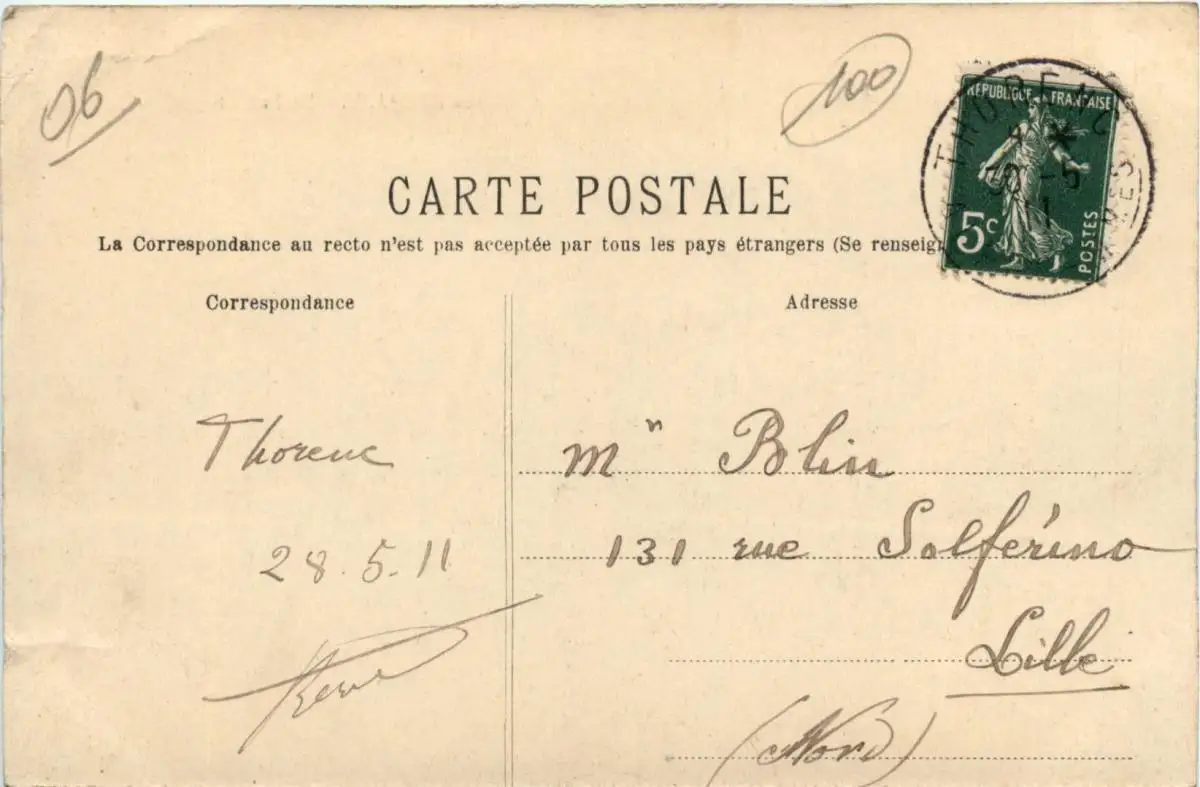 06
100
RÉPUBLIQUE FRANÇAISE
THORENC
30 -5
11
5c
POSTES
CARTE POSTALE
La Correspondance au recto n'est pas acceptée par tous les pays étrangers (Se renseign
Correspondance
Adresse
Thorenc
28.5.11
Mn Blin
131 rue Solférino
Lille
(Nord)